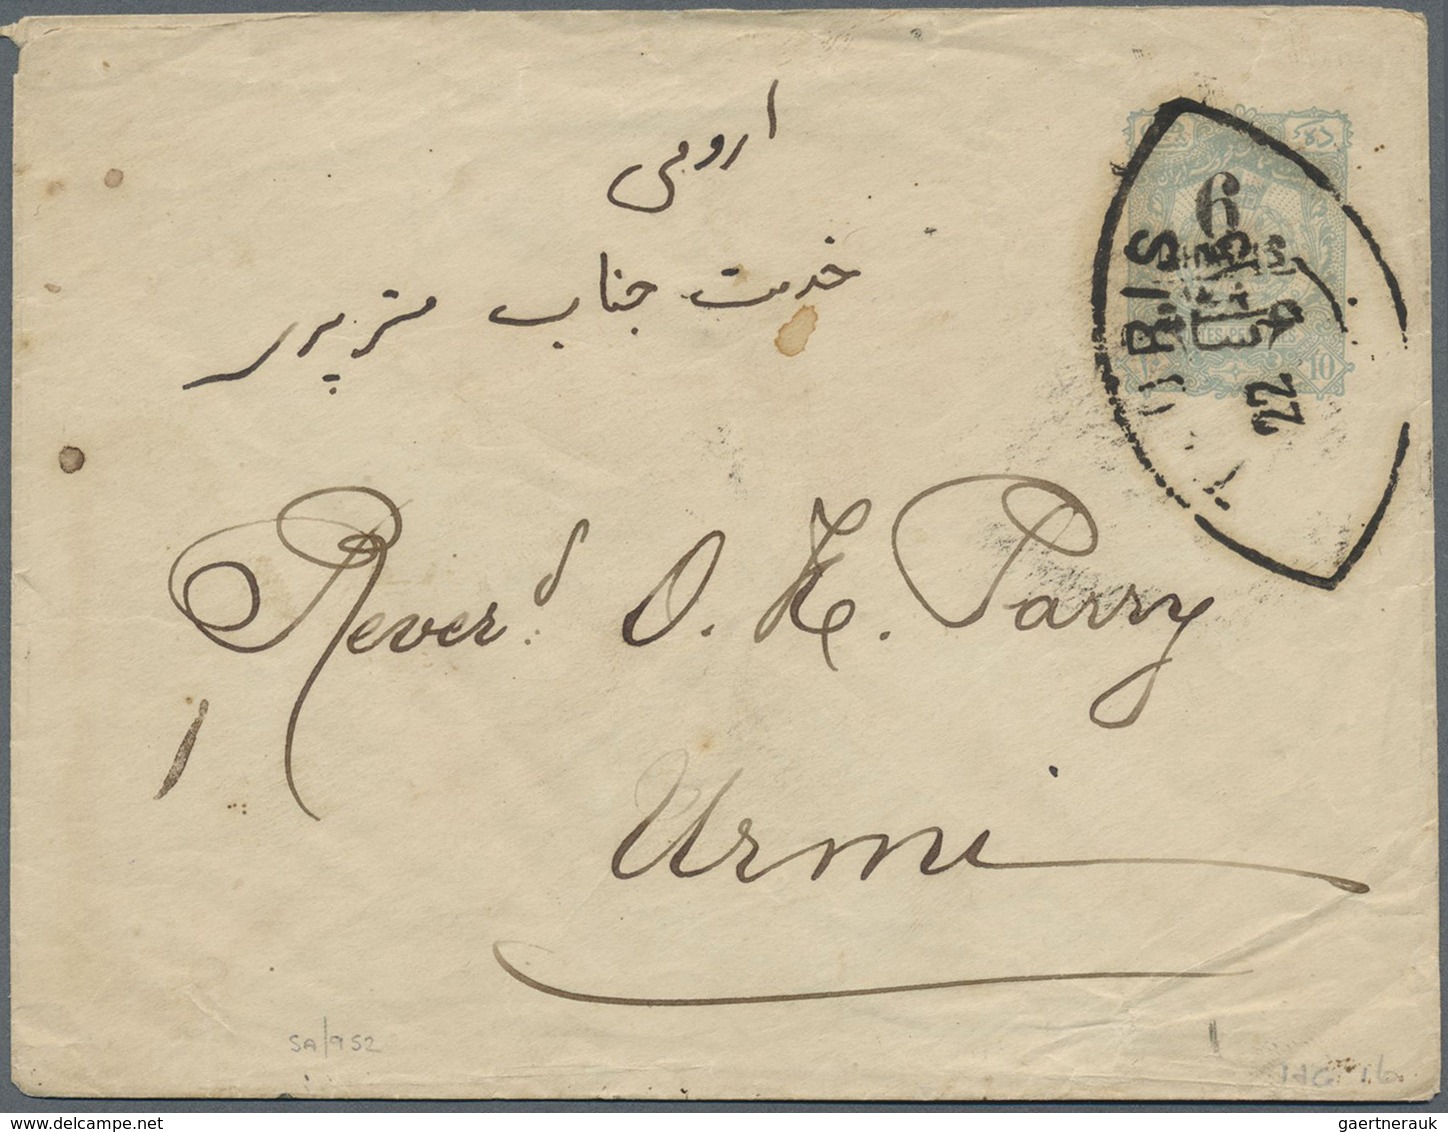 ارومی
خدمت جناب مستر پری
Rever.d O. H. Parry
Urmi
6
22
10
SA/952
HG 16
gaertnerauk